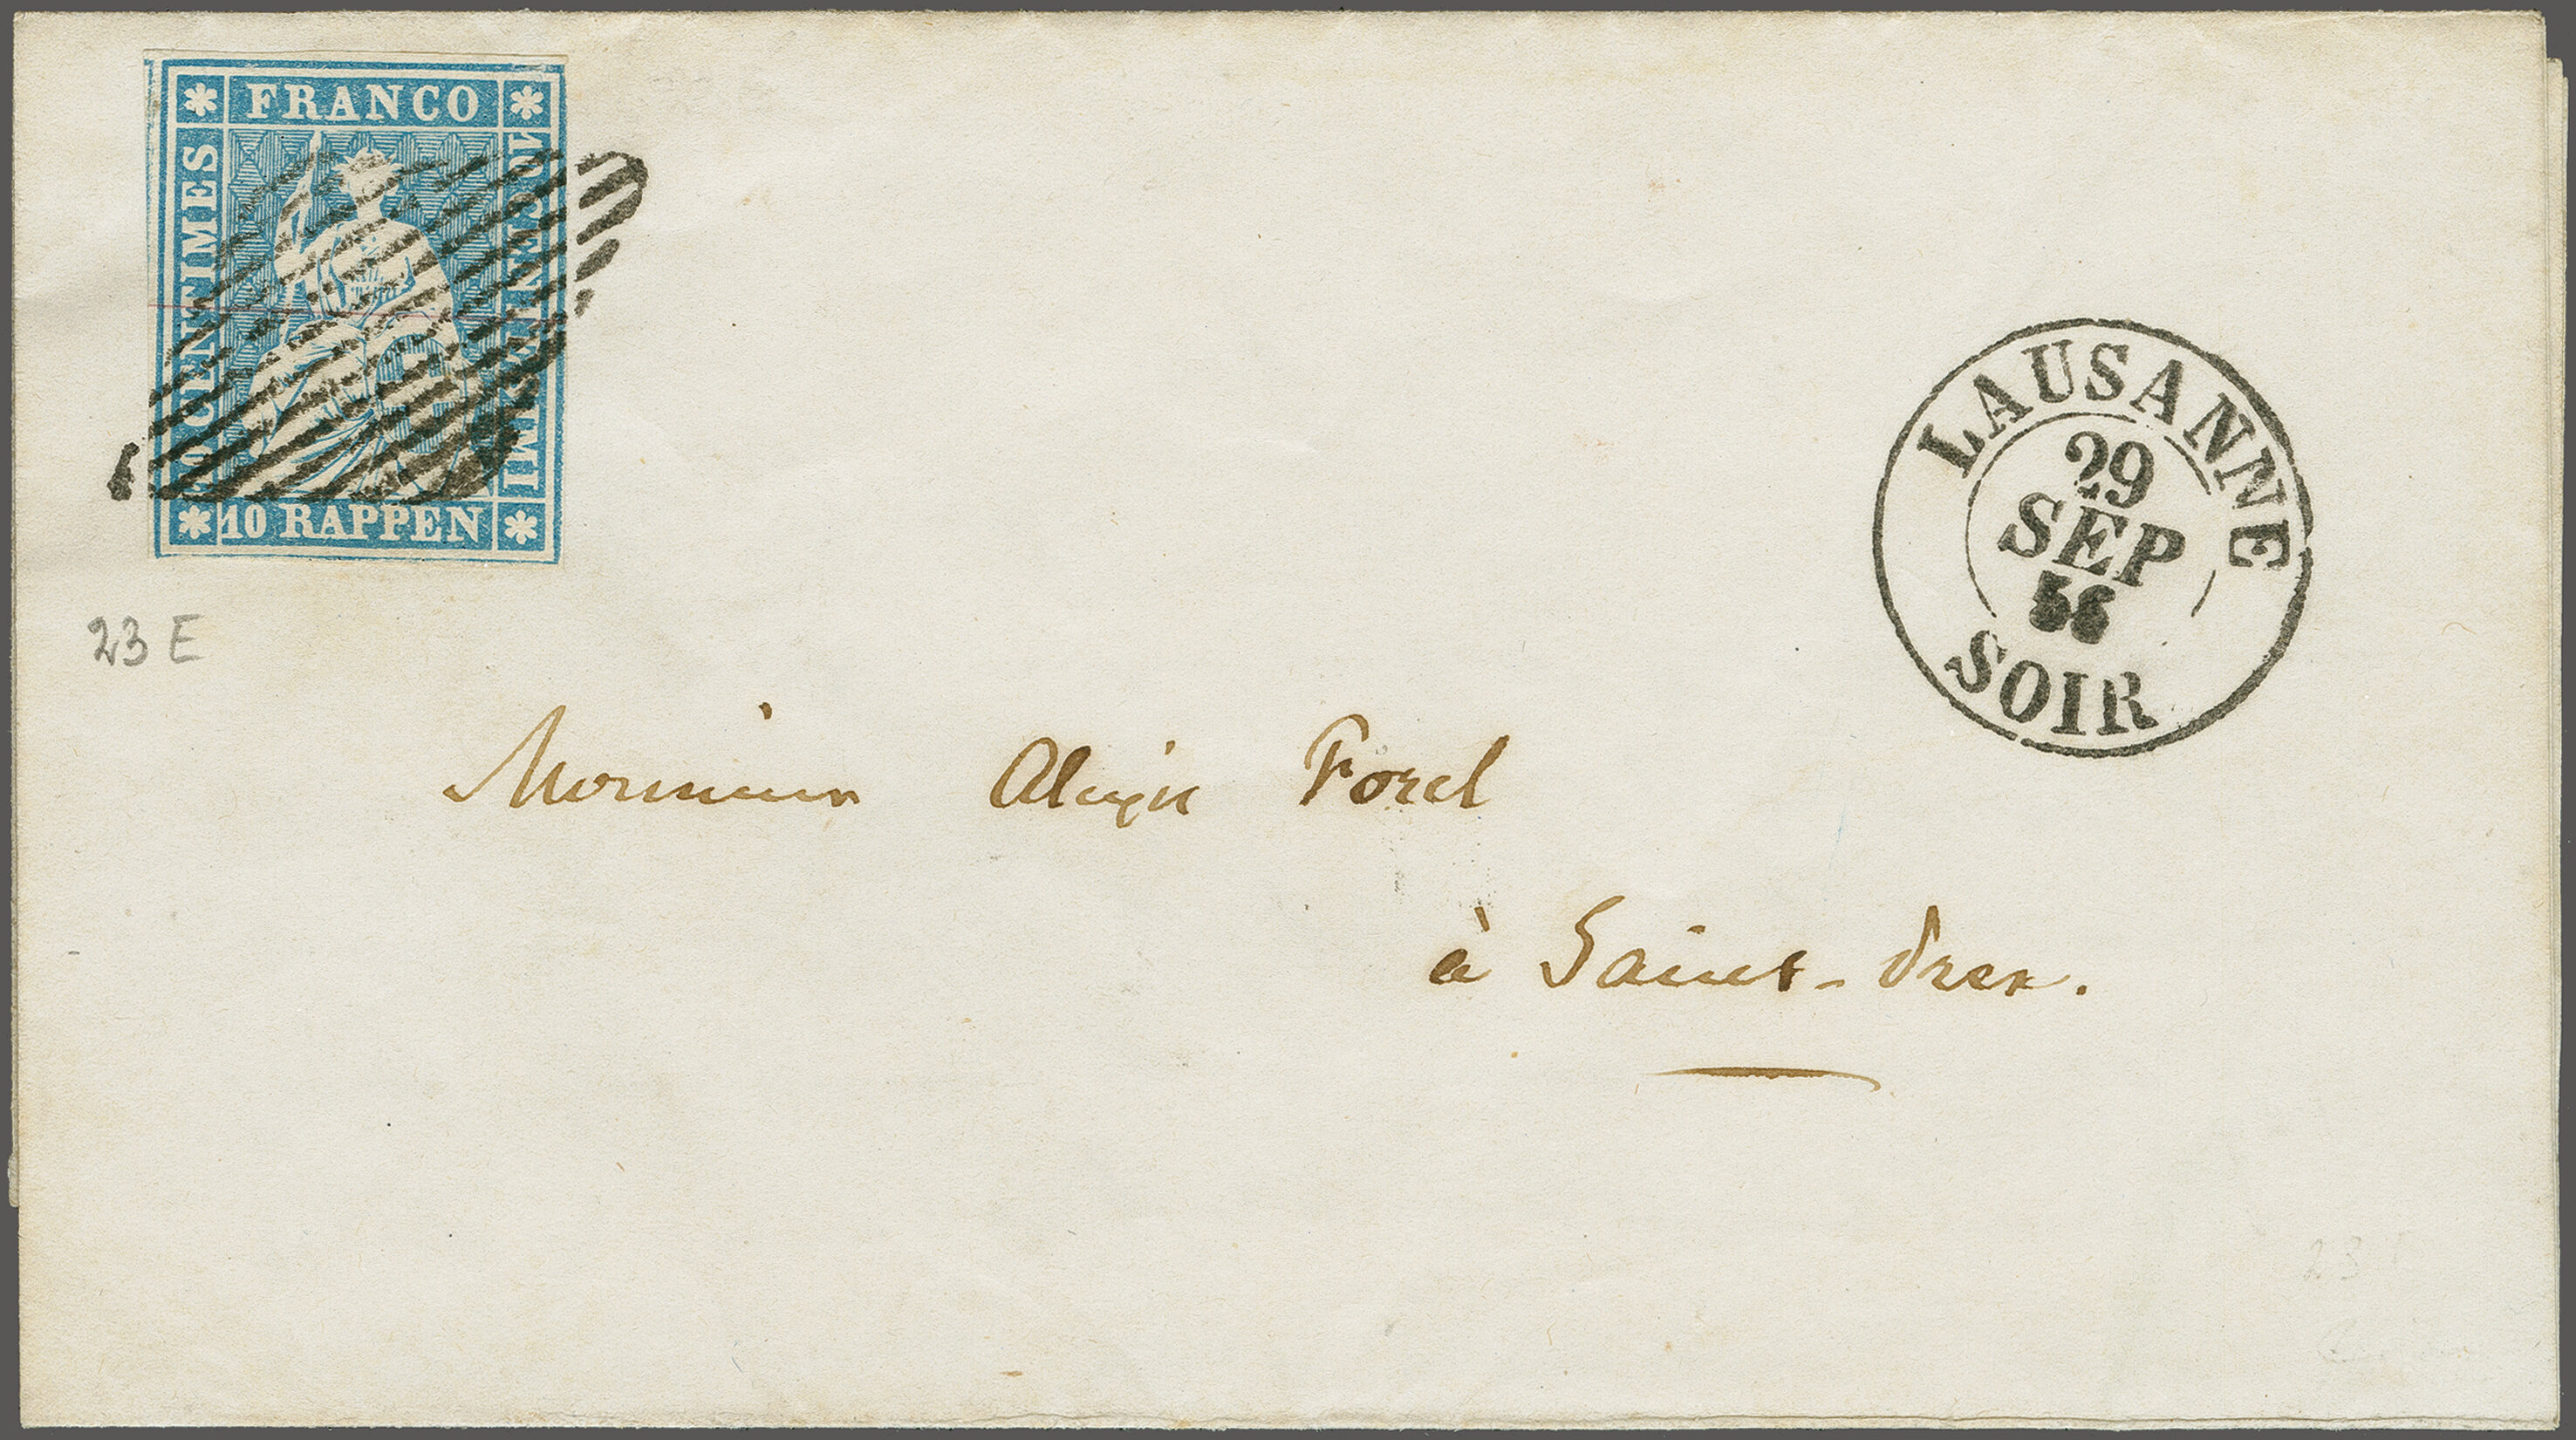 FRANCO
CENTIMES
CENTESIMI
10 RAPPEN
LAUSANNE
29
SEP
56
SOIR
23 E
Monsieur Alexis Forel
à Saint-Prex.
23